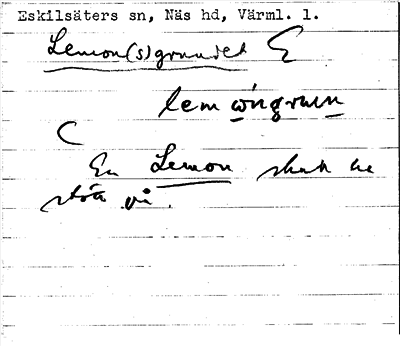 Eskilsäters sn, Näs hd, Värml. l.
Lemon(s)grundet
lem ωngrunn
En Lemon skall ha
stött på.